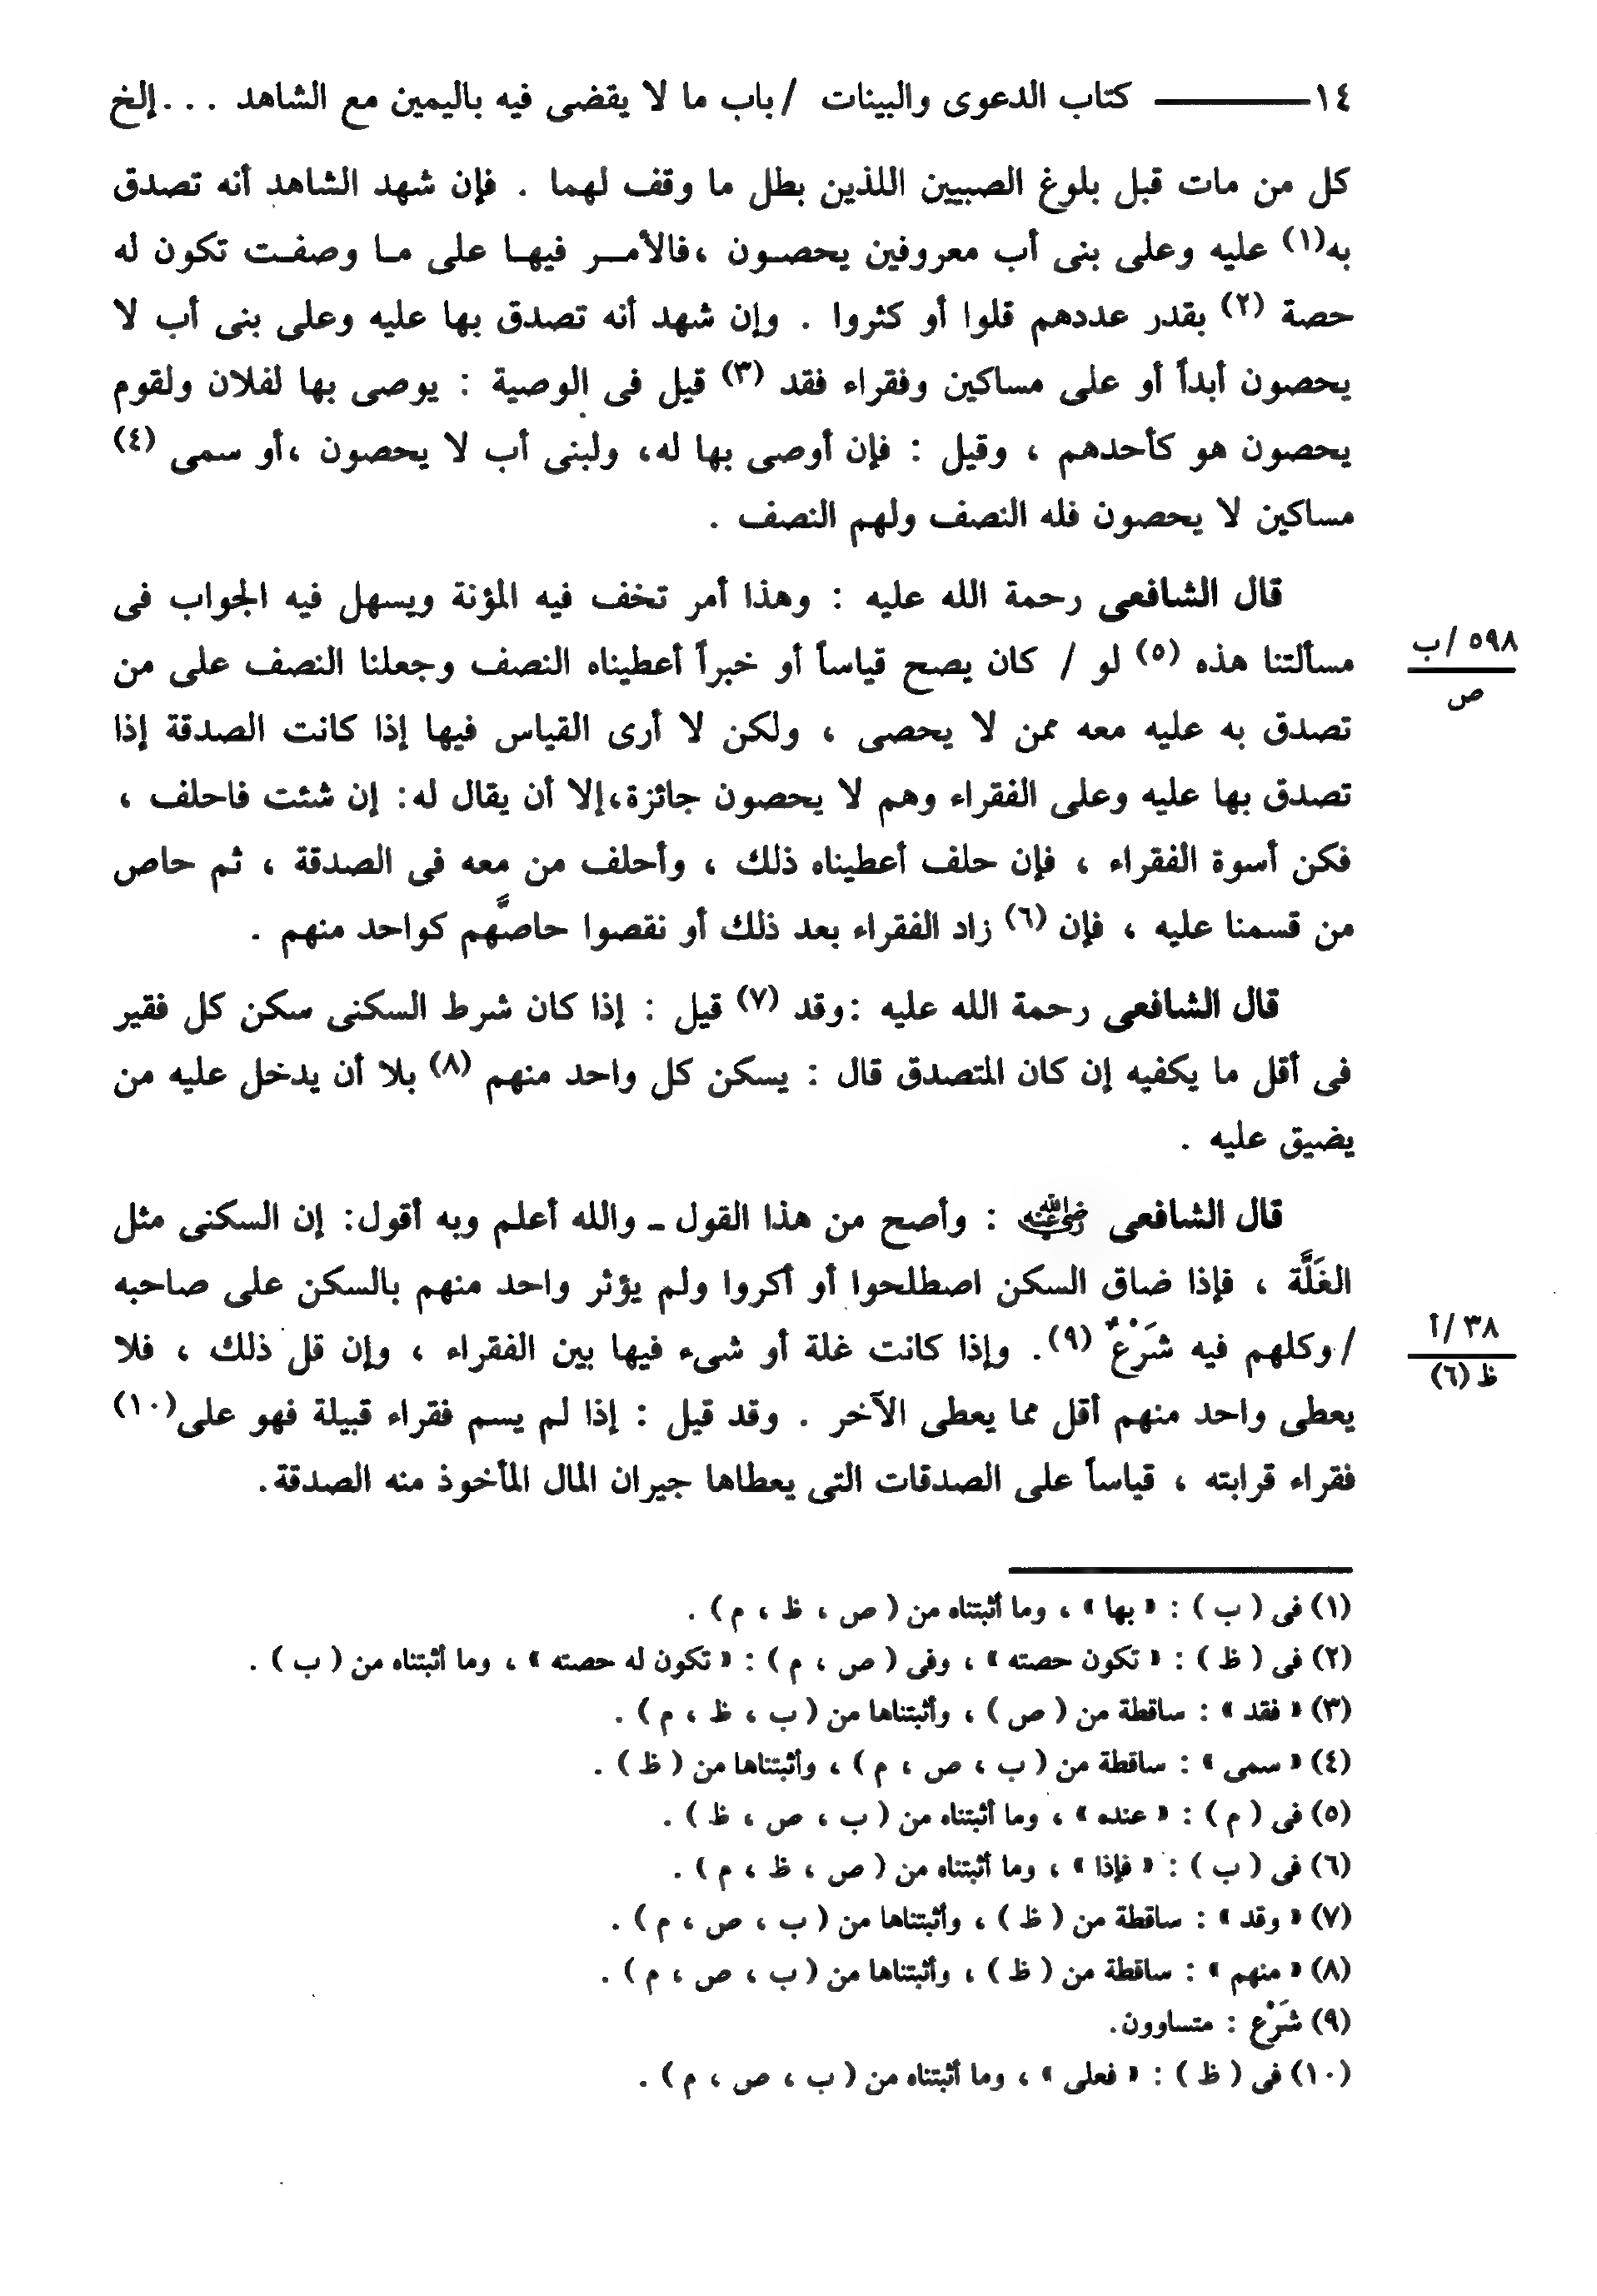 ١٤ ـــــــ كتاب الدعوى والبينات / باب ما لا يقضى فيه باليمين مع الشاهد ... إلخ
كل من مات قبل بلوغ الصبيين اللذين بطل ما وقف لهما . فإن شهد الشاهد أنه تصدق
به(١) عليه وعلى بنى أب معروفين يحصون ،فالأمر فيها على ما وصفت تكون له
حصة (٢) بقدر عددهم قلوا أو كثروا . وإن شهد أنه تصدق بها عليه وعلى بنى أب لا
يحصون أبداً أو على مساكين وفقراء فقد (٣) قيل فى الوصية : يوصى بها لفلان ولقوم
يحصون هو كأحدهم ، وقيل : فإن أوصى بها له، ولبنى أب لا يحصون ،أو سمى (٤)
مساكين لا يحصون فله النصف ولهم النصف .
قال الشافعى رحمة الله عليه : وهذا أمر تخف فيه المؤنة ويسهل فيه الجواب فى
مسألتنا هذه (٥) لو / كان يصح قياساً أو خبراً أعطيناه النصف وجعلنا النصف على من
٥٩٨ /ب
ص
تصدق به عليه معه ممن لا يحصى ، ولكن لا أرى القياس فيها إذا كانت الصدقة إذا
تصدق بها عليه وعلى الفقراء وهم لا يحصون جائزة،إلا أن يقال له: إن شئت فاحلف ،
فكن أسوة الفقراء ، فإن حلف أعطيناه ذلك ، وأحلف من معه فى الصدقة ، ثم حاص
من قسمنا عليه ، فإن (٦) زاد الفقراء بعد ذلك أو نقصوا حاصَّهم كواحد منهم .
قال الشافعى رحمة الله عليه :وقد (٧) قيل : إذا كان شرط السكنى سكن كل فقير
فى أقل ما يكفيه إن كان المتصدق قال : يسكن كل واحد منهم (٨) بلا أن يدخل عليه من
يضيق عليه .
قال الشافعى رضي الله عنه : وأصح من هذا القول ـ والله أعلم وبه أقول: إن السكنى مثل
الغَلَّة ، فإذا ضاق السكن اصطلحوا أو أكروا ولم يؤثر واحد منهم بالسكن على صاحبه
/ وكلهم فيه شَرْعٌ (٩). وإذا كانت غلة أو شىء فيها بين الفقراء ، وإن قل ذلك ، فلا
٣٨ /أ
ظ (٦)
يعطى واحد منهم أقل مما يعطى الآخر . وقد قيل : إذا لم يسم فقراء قبيلة فهو على(١٠)
فقراء قرابته ، قياساً على الصدقات التى يعطاها جيران المال المأخوذ منه الصدقة.
(١) فى ( ب ) : « بها » ، وما أثبتناه من ( ص ، ظ ، م ) .
(٢) فى ( ظ ) : « تكون حصته » ، وفى ( ص ، م ) : « تكون له حصته » ، وما أثبتناه من ( ب ) .
(٣) « فقد » : ساقطة من ( ص ) ، وأثبتناها من ( ب ، ظ ، م ) .
(٤) « سمى » : ساقطة من ( ب ، ص ، م ) ، وأثبتناها من ( ظ ) .
(٥) فى ( م ) : « عنده » ، وما أثبتناه من ( ب ، ص ، ظ ) .
(٦) فى ( ب ) : « فإذا » ، وما أثبتناه من ( ص ، ظ ، م ) .
(٧) « وقد » : ساقطة من ( ظ ) ، وأثبتناها من ( ب ، ص ، م ) .
(٨) « منهم » : ساقطة من ( ظ ) ، وأثبتناها من ( ب ، ص ، م ) .
(٩) شَرْع : متساوون.
(١٠) فى ( ظ ) : « فعلى » ، وما أثبتناه من ( ب ، ص ، م ) .